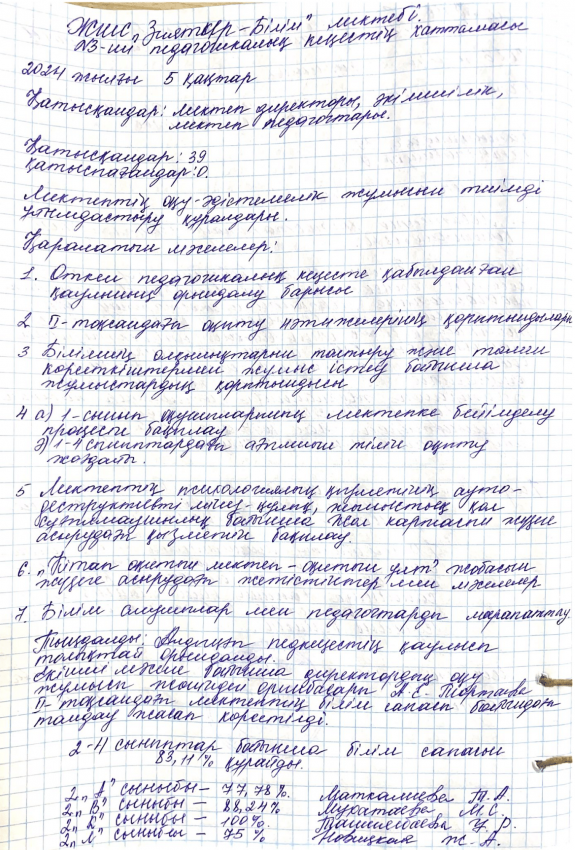 ЖШС „Зияткер-Білім" мектебі.
№3-ші педагогикалық кеңестің хаттамасы
2024 жылғы 5 қаңтар
Қатысқандар: мектеп директоры, әкімшілік,
мектеп педагогтары.
Қатысқандар: 39
қатыспағандар: 0.
Мектептің оқу-әдістемелік жұмысын тиімді
ұйымдастыру құралдары.
Қаралатын мәселелер:
1. Өткен педагогикалық кеңесте қабылданған
қаулының орындалу барысы
2 II-тоқсандағы оқыту нәтижелерінің қорытындылары
3 Білімнің олқылықтарын толтыру және төмен
көрсеткіштермен жұмыс істеу бойынша
жұмыстардың қорытындысы
4 а) 1-сынып оқушыларының мектепке бейімделу
процесін бақылау
ә) 1-4 сыныптардағы ағылшын тілін оқыту
жағдайы.
5 Мектептің психологиялық қызметінің ауто-
деструктивті мінез-құлық, жыныстық қол
сұғылмаушылық бойынша жол картасын жүзеге
асырудағы қызметін бақылау.
6. „Кітап оқитын мектеп - оқитын ұлт" жобасын
жүзеге асырудағы жетістіктер мен мәселелер
7. Білім алушылар мен педагогтарды марапаттау.
Тыңдалды: Алдыңғы педкеңестің қаулысы
толықтай орындалды.
Екінші мәселе бойынша директордың оқу
жұмысы жөніндегі орынбасары А.Е.
II-тоқсандағы мектептің білім сапасы бойынша
талдау жасап көрсетілді.
2-4 сыныптар бойынша білім сапасы
83,11% құрайды.
2 „А" сыныбы - 77,78%. Маткалиева Т.А.
2 „В" сыныбы - 88,24% Муратаева М.С.
2 „К" сыныбы - 100%.
2 „Л" сыныбы - 75% Новицкая Ж.А.